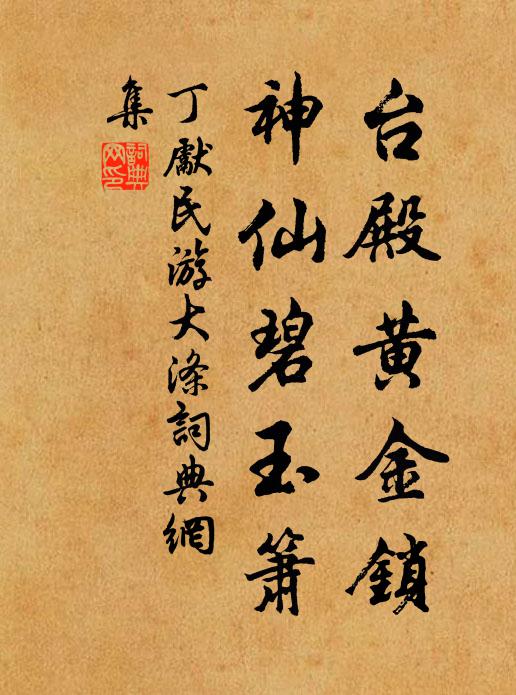 台殿黄金鎖
神仙碧玉簫
丁獻民游大滌詞典網
集
詞典
网印